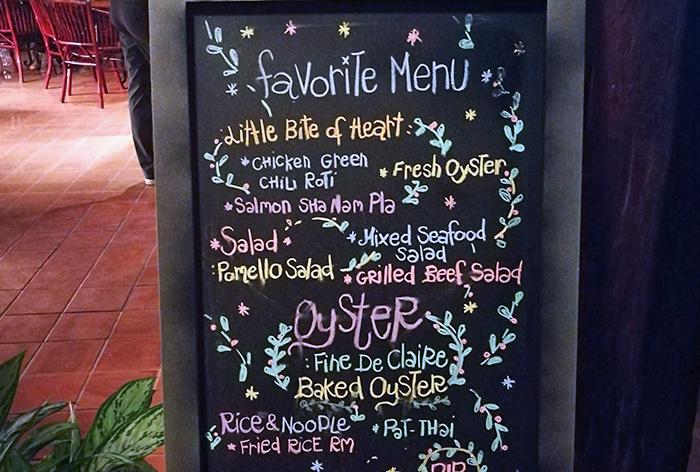 favorite Menu
Little Bite of Heart
*Chicken Green
Chili Roti
* Fresh Oyster
*Salmon Sha Nam Pla
*Salad
*Mixed Seafood
Salad
Pomello Salad
*Grilled Beef Salad
Oyster
: Fine De Claire
Baked Oyster
Rice & Noodle
* Pat-Thai
* Fried Rice RM
DIP